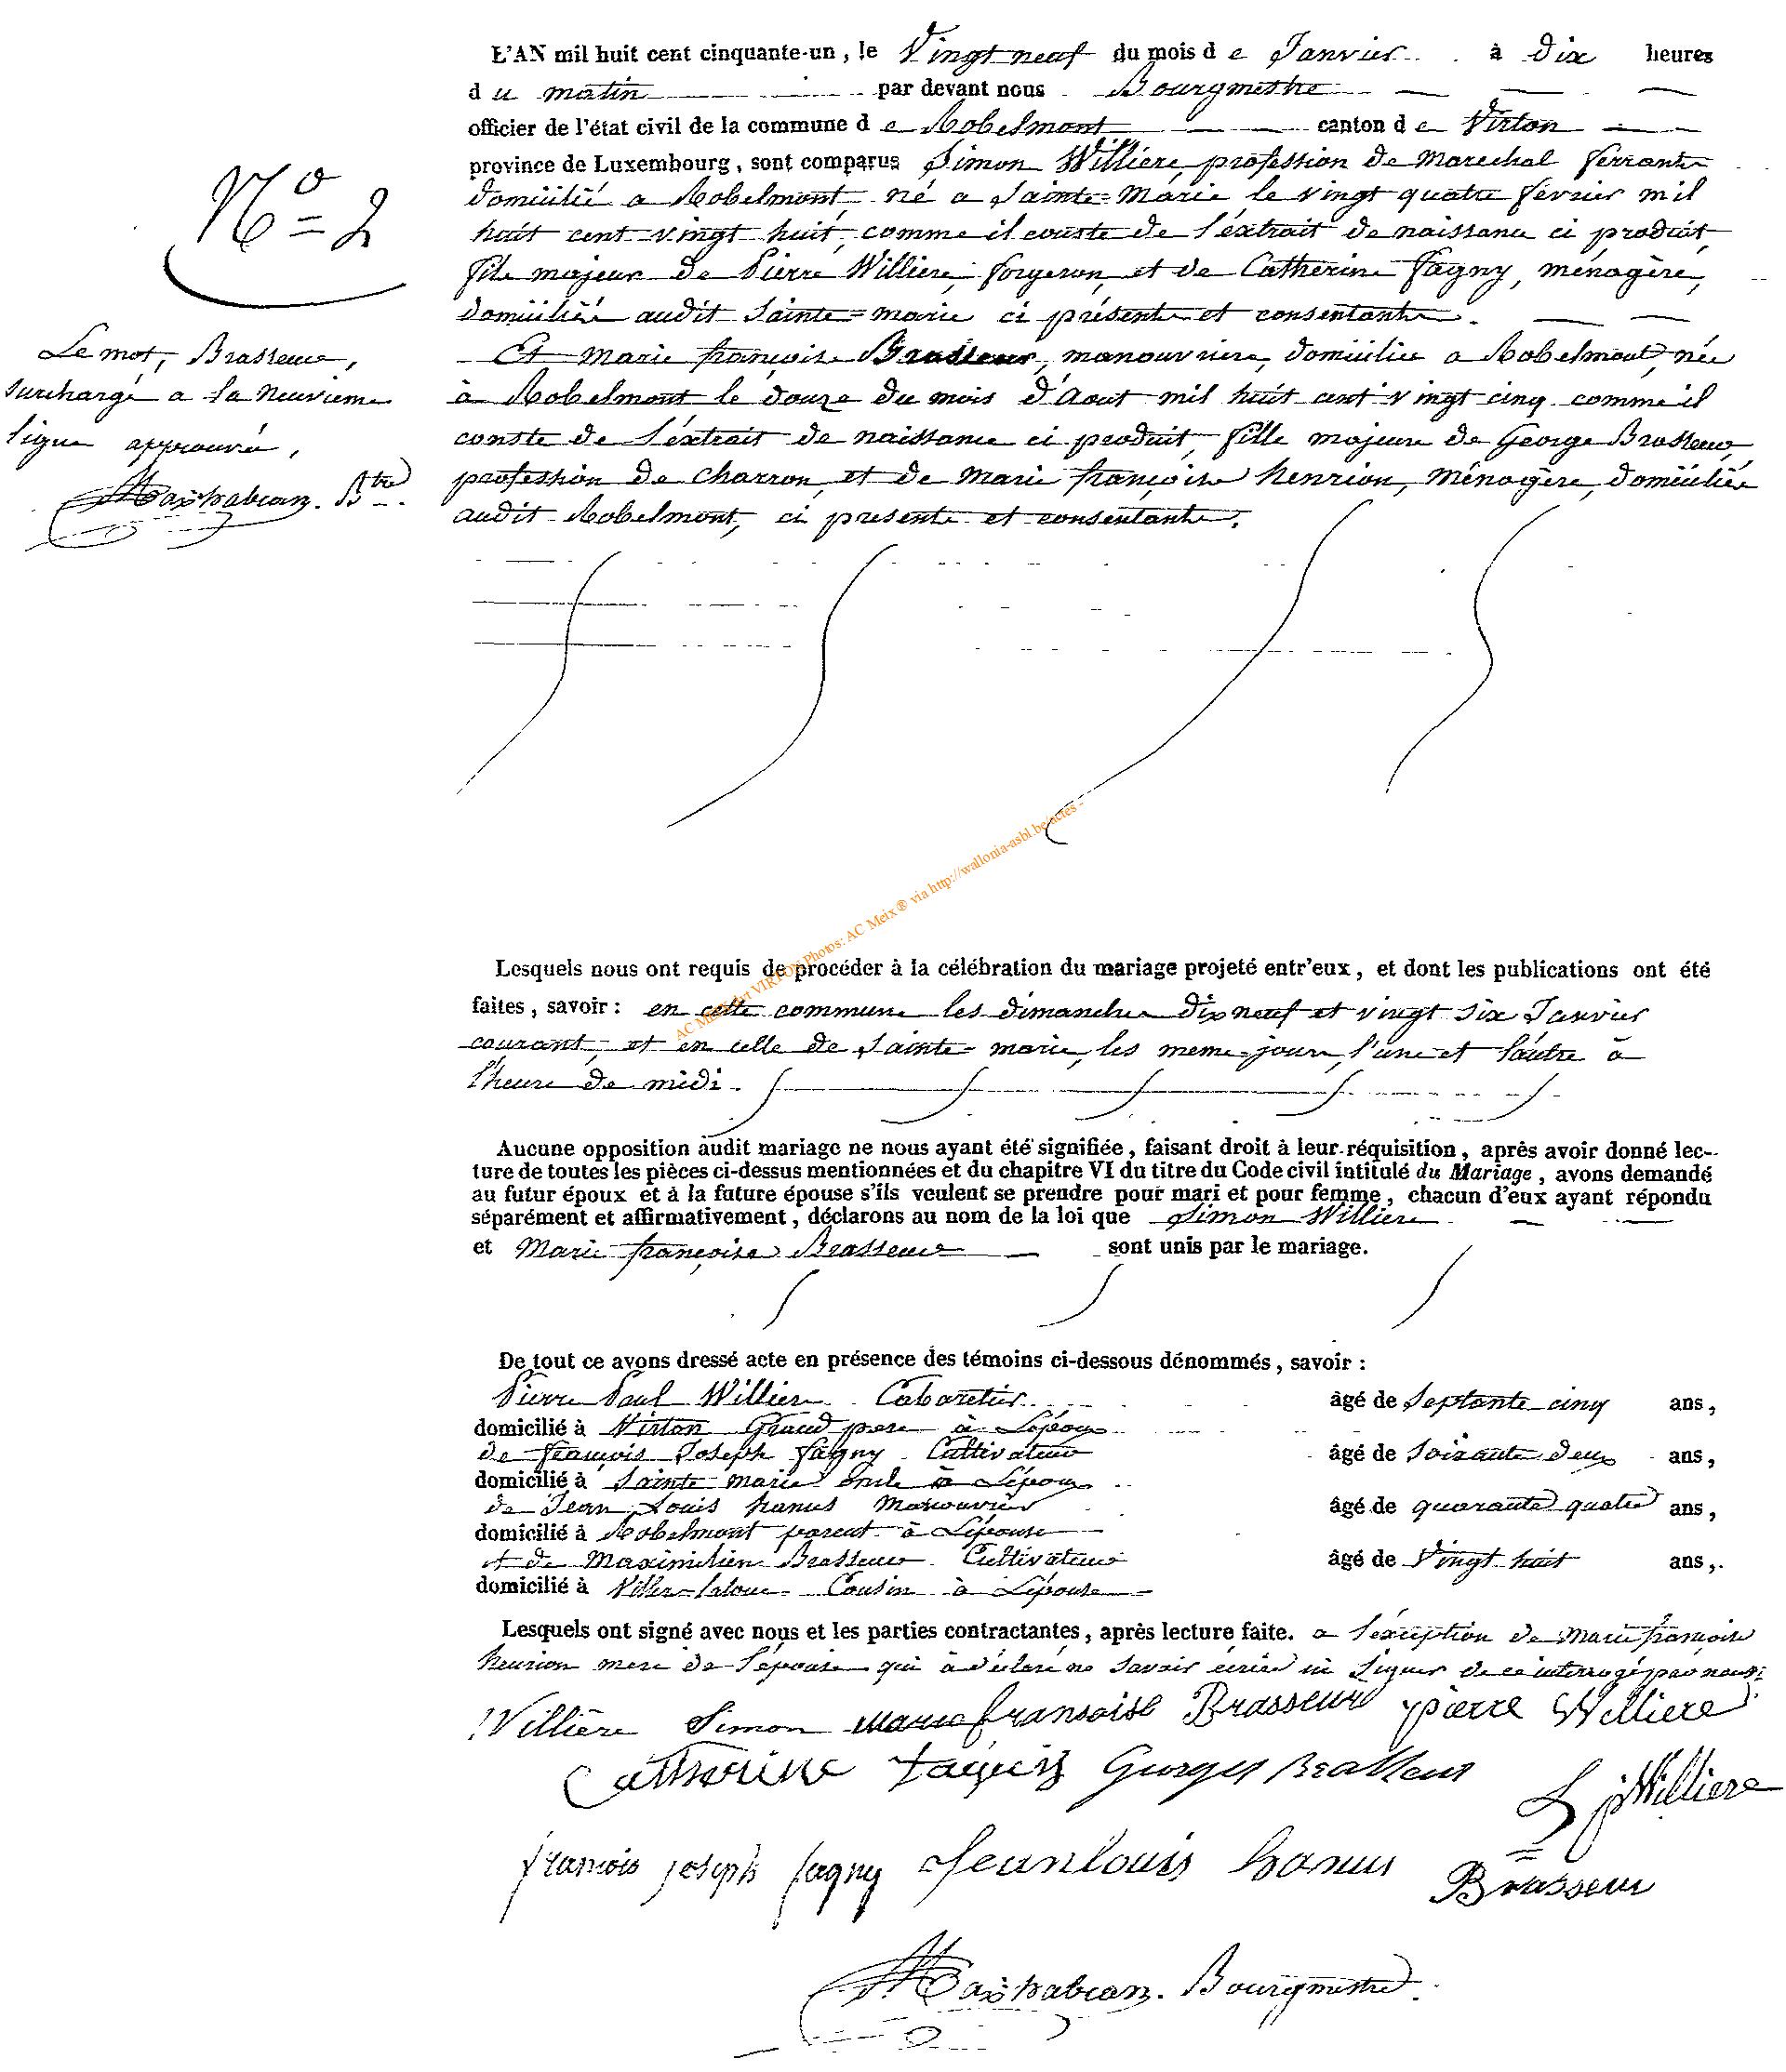 L'AN mil huit cent cinquante-un, le Vingt neuf du mois de Janvier à dix heures
du matin par devant nous Bourgmestre
officier de l'état civil de la commune de Robelmont canton de Virton
province de Luxembourg, sont comparus Simon Willière, profession de Marechal ferrante
N° 2
domicilié a Robelmont, né a Sainte-Marie le vingt quatre février mil
huit cent vingt huit, comme il conste de l'éxtrait de naissance ci produit,
fils majeur de Pierre Williere, forgeron, et de Catherine Fagny, ménagère,
domicilié audit Sainte-marie ci présente et consentante.
Le mot, Brasseur,
surchargé a la neuvieme
ligne approuvé,
Btre
Et Marie françoise Brasseur, manouvriere, domiciliée a Robelmont, née
à Robelmont le douze du mois d'Aout mil huit cent vingt cinq comme il
conste de l'éxtrait de naissance ci produit, fille majeure de George Brasseur,
profession de charron, et de Marie françoise henrion, Ménagère, domiciliée
audit Robelmont, ci presente et consentante.
AC Meix dvt VIRTON Photos: AC Meix ® via http://wallonia-asbl.be/actes -
Lesquels nous ont requis de procéder à la célébration du mariage projeté entr'eux, et dont les publications ont été
faites, savoir: en cette commune les dimanches dix neuf et vingt six Janvier
courant, et en celle de Sainte-marie, les meme jour, l'une et l'autre à
l'heure de midi.
Aucune opposition audit mariage ne nous ayant été signifiée, faisant droit à leur réquisition, après avoir donné lec-
ture de toutes les pièces ci-dessus mentionnées et du chapitre VI du titre du Code civil intitulé du Mariage, avons demandé
au futur époux et à la future épouse s'ils veulent se prendre pour mari et pour femme, chacun d'eux ayant répondu
séparément et affirmativement, déclarons au nom de la loi que Simon Williere
et Marie françoise Brasseur sont unis par le mariage.
De tout ce avons dressé acte en présence des témoins ci-dessous dénommés, savoir:
Pierre Paul Williere Cabaretier âgé de Septante cinq ans,
domicilié à Virton Grand pere à Lépoux
de françois Joseph fagny Cultivateur âgé de Soixante deux ans,
domicilié à Sainte marie oncle à Lépoux
de Jean Louis hanus Manouvrier âgé de quarante quatre ans,
domicilié à Robelmont parent à Lépouse
et de Maximilien Brasseur Cultivateur âgé de Vingt huit ans,
domicilié à Villers-laloue Cousin à Lépouse
Lesquels ont signé avec nous et les parties contractantes, après lecture faite. a l'exception de Marie françoise
henrion mere de l'épouse qui à déclaré ne savoir écrire ni signer de ce interrogé par nous.
Willière Simon marie fransoise Brasseur pierre Williere
Catherine fagny Georges Brasseur
P Williere
francois joseph fagny Jean louis hanus
Brasseur
Bourgmestre